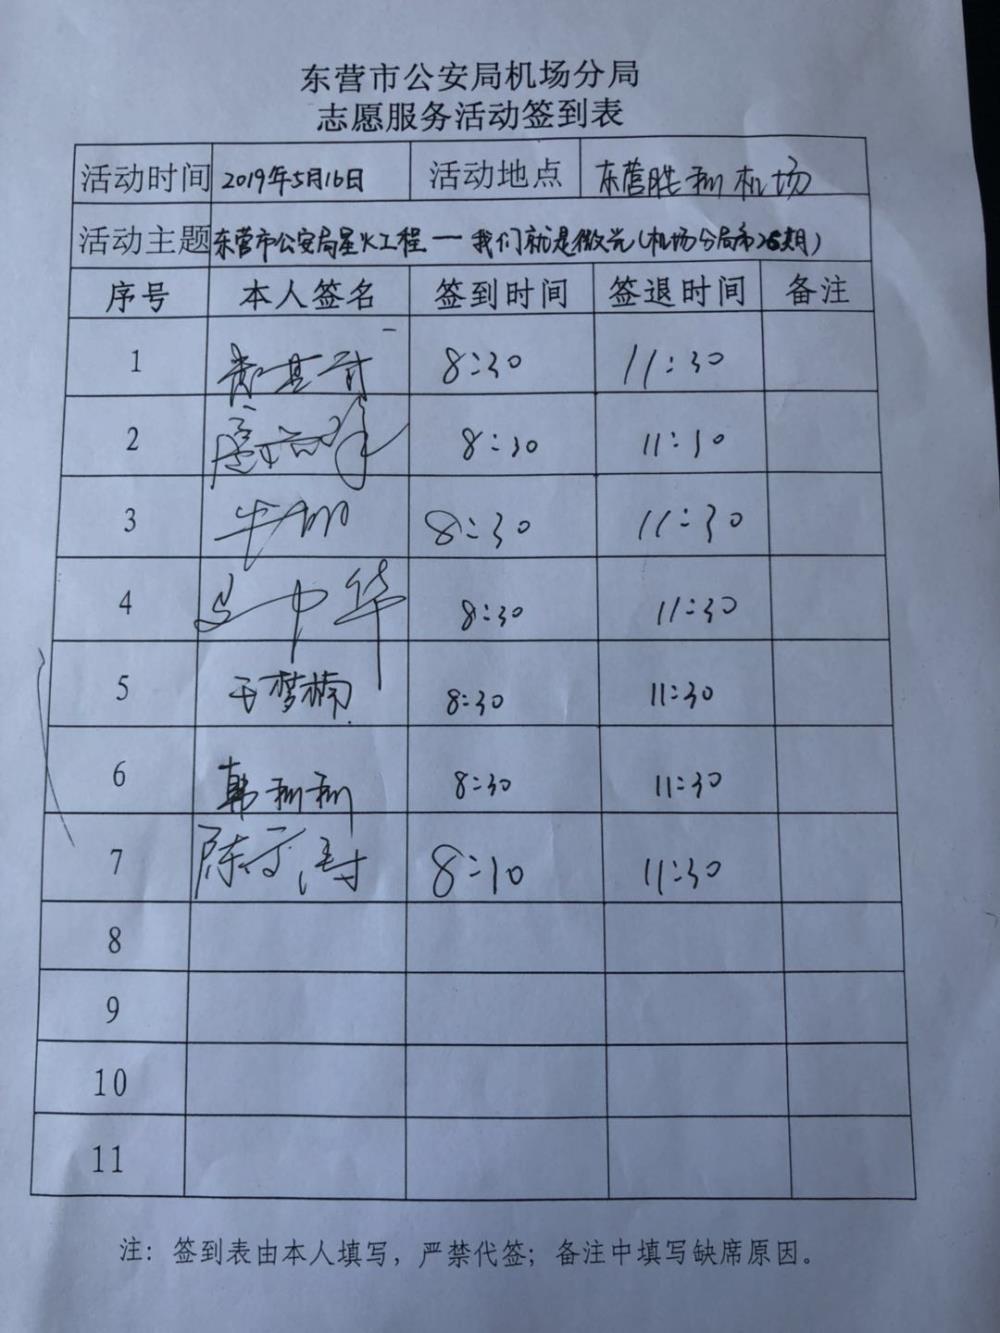 东营市公安局机场分局
志愿服务活动签到表
活动时间 2019年5月16日 活动地点 东营胜利机场
活动主题 东营市公安局星火工程一我们就是微光(机场分局第26期)
序号 本人签名 签到时间 签退时间 备注
1 8:30 11:30
2 8:30 11:30
3 8:30 11:30
4 中华 8:30 11:30
5 王梦楠 8:30 11:30
6 韩利利 8:30 11:30
7 陈 8:10 11:30
8
9
10
11
注:签到表由本人填写,严禁代签;备注中填写缺席原因。